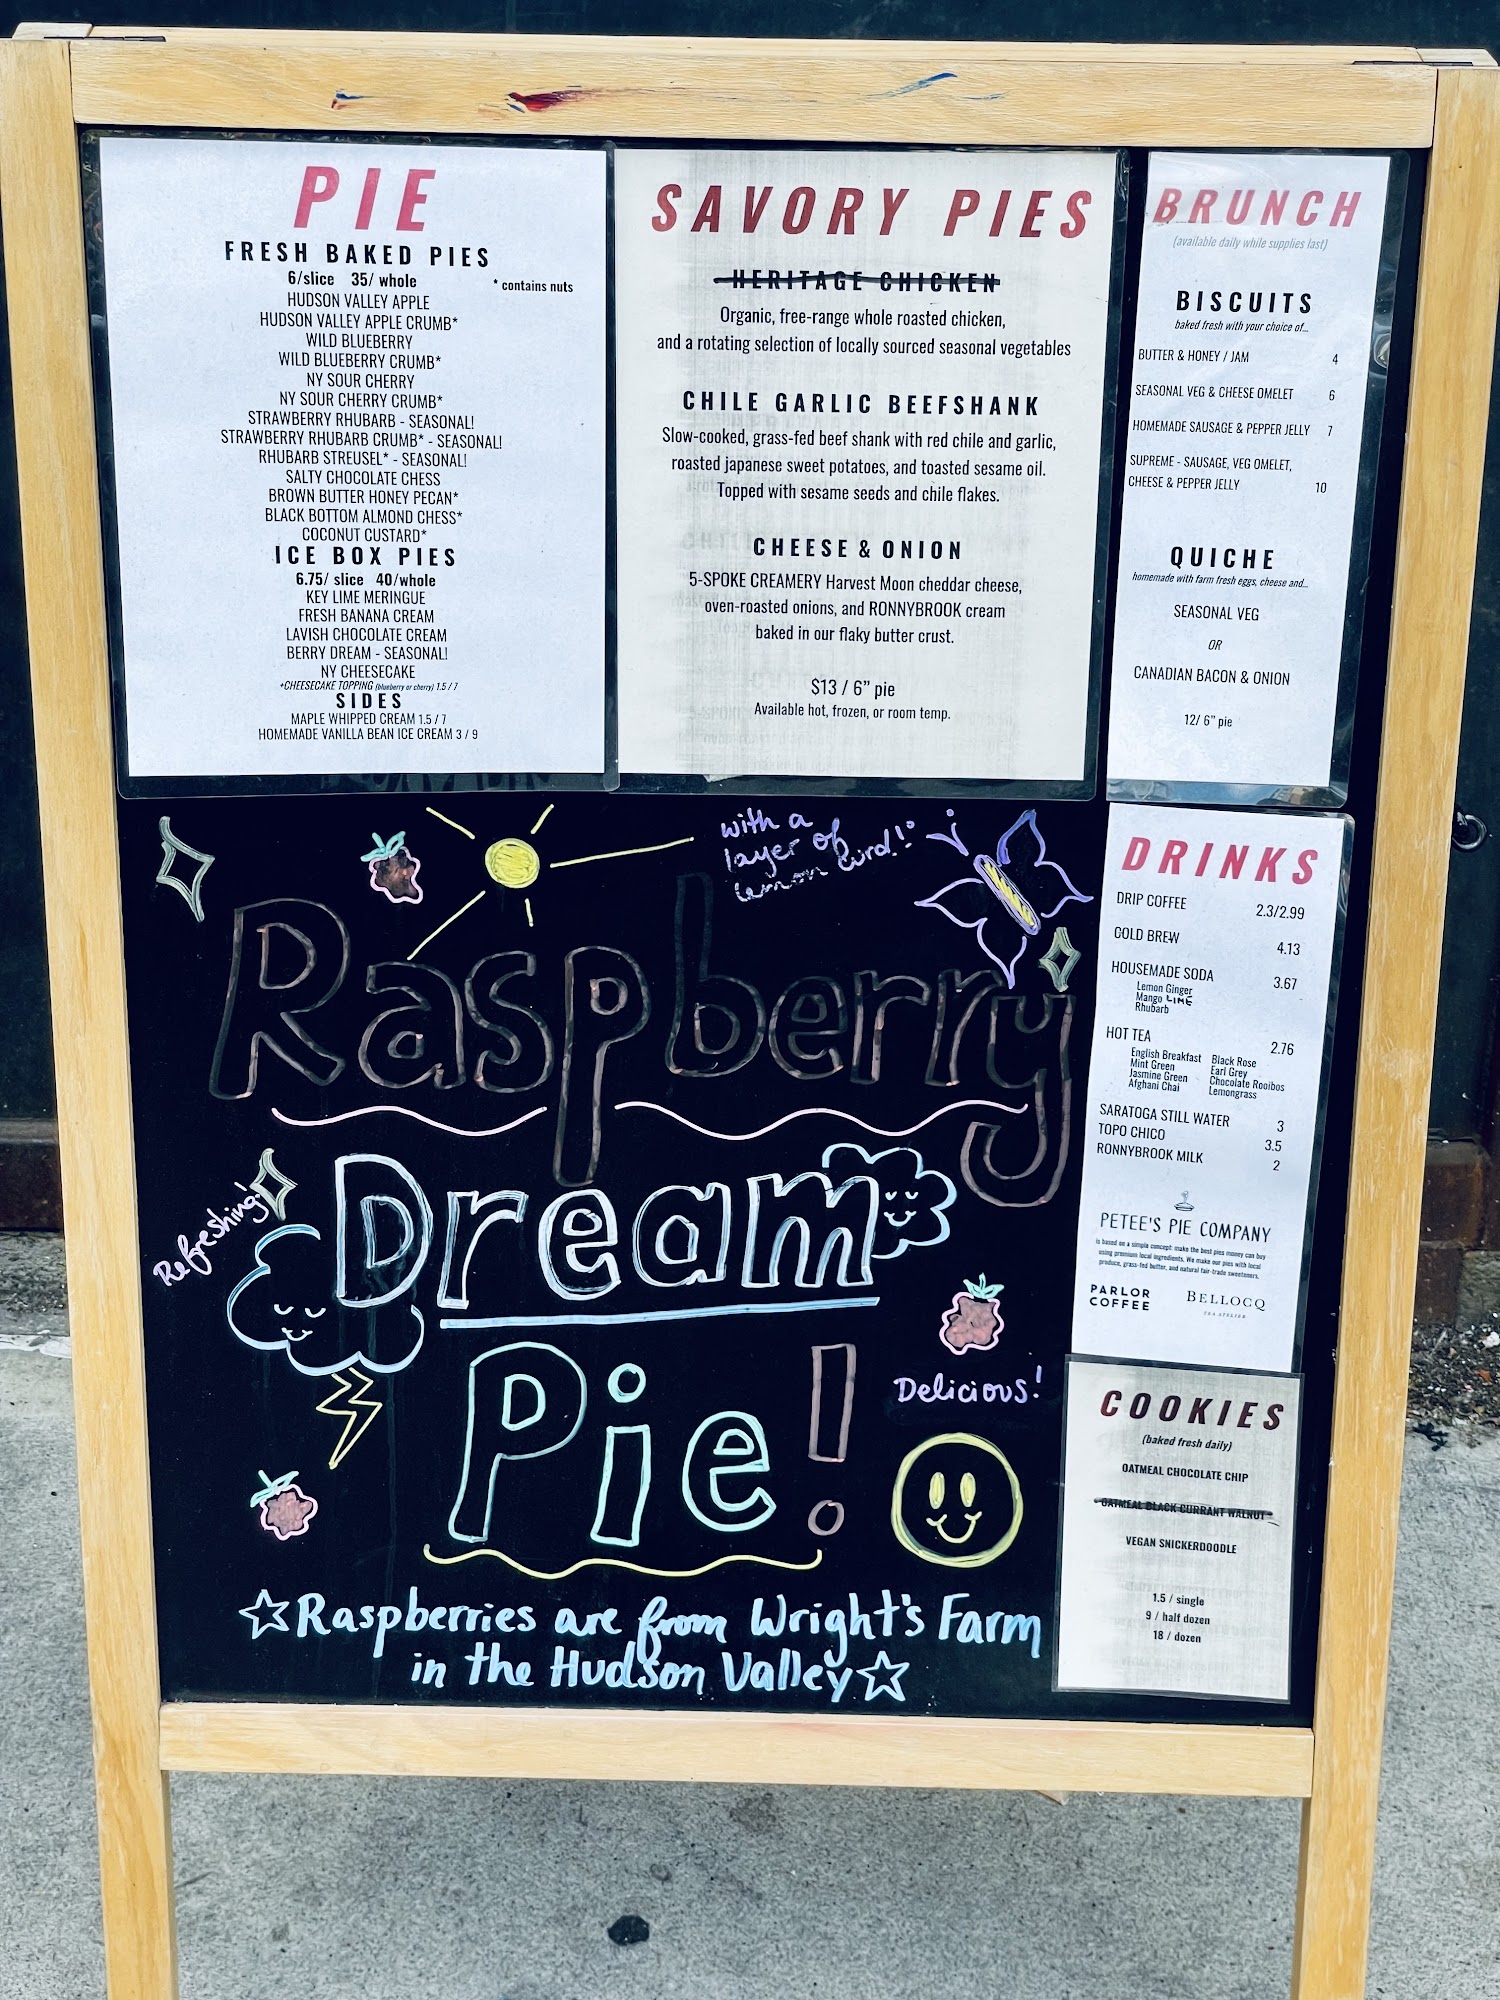 PIE
FRESH BAKED PIES
6/slice 35/ whole
* contains nuts
HUDSON VALLEY APPLE
HUDSON VALLEY APPLE CRUMB*
WILD BLUEBERRY
WILD BLUEBERRY CRUMB*
NY SOUR CHERRY
NY SOUR CHERRY CRUMB*
STRAWBERRY RHUBARB - SEASONAL!
STRAWBERRY RHUBARB CRUMB* - SEASONAL!
RHUBARB STREUSEL* - SEASONAL!
SALTY CHOCOLATE CHESS
BROWN BUTTER HONEY PECAN*
BLACK BOTTOM ALMOND CHESS*
COCONUT CUSTARD*
ICE BOX PIES
6.75/ slice 40/whole
KEY LIME MERINGUE
FRESH BANANA CREAM
LAVISH CHOCOLATE CREAM
BERRY DREAM - SEASONAL!
NY CHEESECAKE
+CHEESECAKE TOPPING (blueberry or cherry) 1.5 / 7
SIDES
MAPLE WHIPPED CREAM 1.5 / 7
HOMEMADE VANILLA BEAN ICE CREAM 3 / 9
SAVORY PIES
HERITAGE CHICKEN
Organic, free-range whole roasted chicken,
and a rotating selection of locally sourced seasonal vegetables
CHILE GARLIC BEEFSHANK
Slow-cooked, grass-fed beef shank with red chile and garlic,
roasted japanese sweet potatoes, and toasted sesame oil.
Topped with sesame seeds and chile flakes.
CHEESE & ONION
5-SPOKE CREAMERY Harvest Moon cheddar cheese,
oven-roasted onions, and RONNYBROOK cream
baked in our flaky butter crust.
$13 / 6" pie
Available hot, frozen, or room temp.
BRUNCH
(available daily while supplies last)
BISCUITS
baked fresh with your choice of...
BUTTER & HONEY / JAM 4
SEASONAL VEG & CHEESE OMELET 6
HOMEMADE SAUSAGE & PEPPER JELLY 7
SUPREME - SAUSAGE, VEG OMELET,
CHEESE & PEPPER JELLY 10
QUICHE
homemade with farm fresh eggs, cheese and...
SEASONAL VEG
OR
CANADIAN BACON & ONION
12/ 6" pie
DRINKS
DRIP COFFEE 2.3/2.99
COLD BREW 4.13
HOUSEMADE SODA 3.67
Lemon Ginger
Mango LIME
Rhubarb
HOT TEA 2.76
English Breakfast Black Rose
Mint Green Earl Grey
Jasmine Green Chocolate Rooibos
Afghani Chai Lemongrass
SARATOGA STILL WATER 3
TOPO CHICO 3.5
RONNYBROOK MILK 2
PETEE'S PIE COMPANY
is based on a simple concept: make the best pies money can buy
using premium local ingredients. We make our pies with local
produce, grass-fed butter, and natural fair-trade sweeteners.
PARLOR
COFFEE
BELLOCQ
TEA ATELIER
COOKIES
(baked fresh daily)
OATMEAL CHOCOLATE CHIP
OATMEAL BLACK CURRANT WALNUT
VEGAN SNICKERDOODLE
1.5 / single
9 / half dozen
18 / dozen
with a
layer of
lemon curd!
Raspberry
Refreshing!
Dream
Pie!
Delicious!
Raspberries are from Wright's Farm
in the Hudson Valley